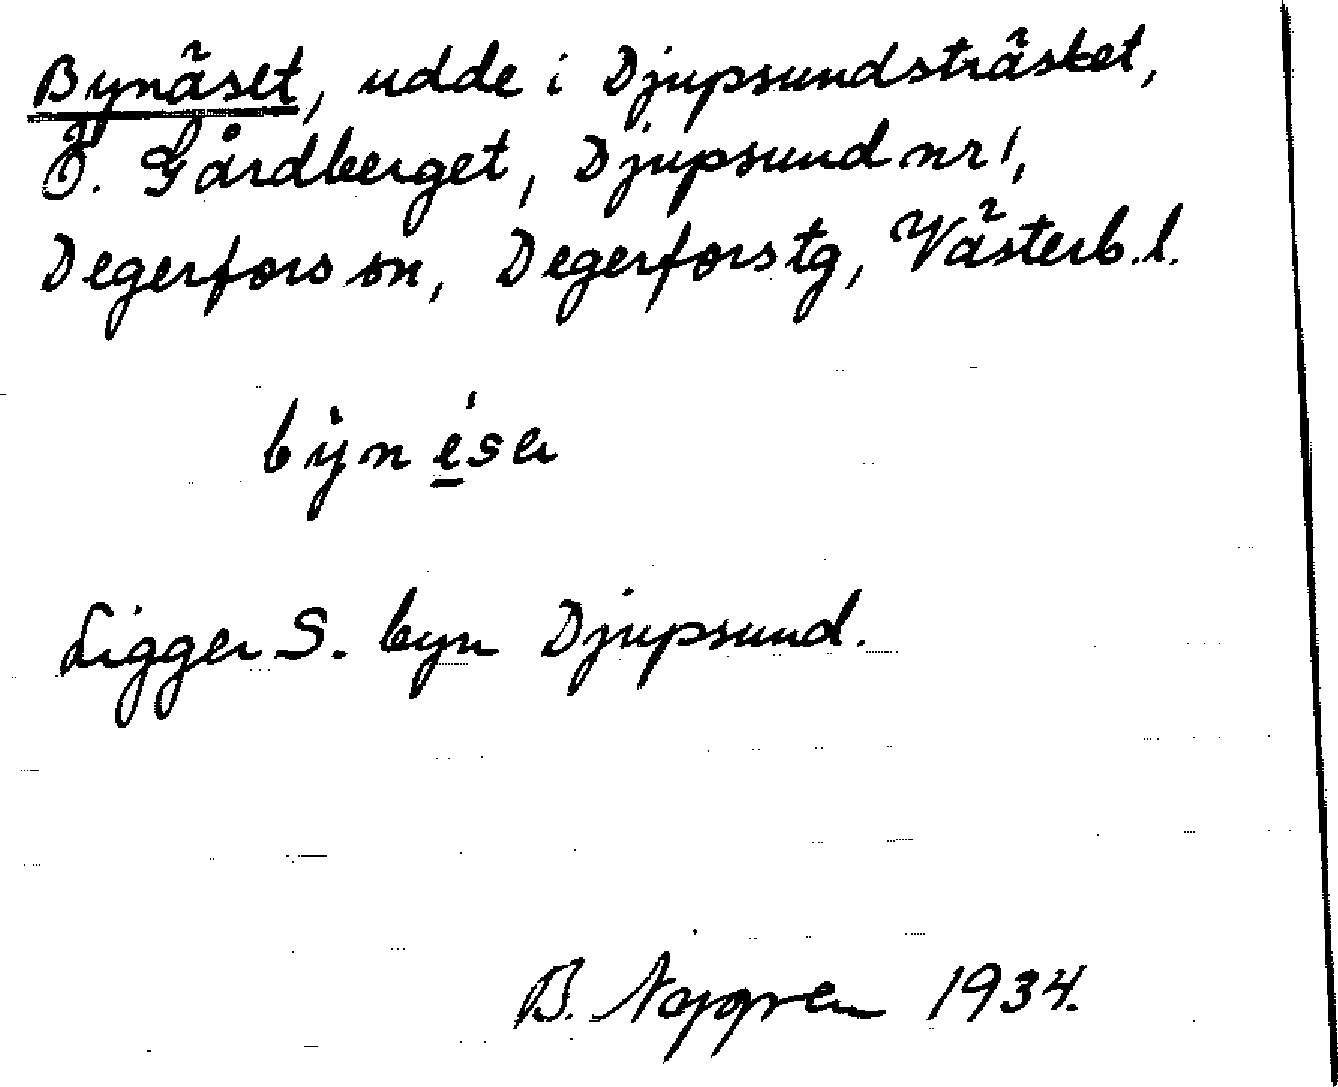 Bynäset, udde i Djupsundsträsket,
Ö. Gårdberget, Djupsund nr 1,
Degerfors sn, Degerfors tg, Västerb. l.
bỳnésa
Ligger S. byn Djupsund.
B. Nygren 1934.